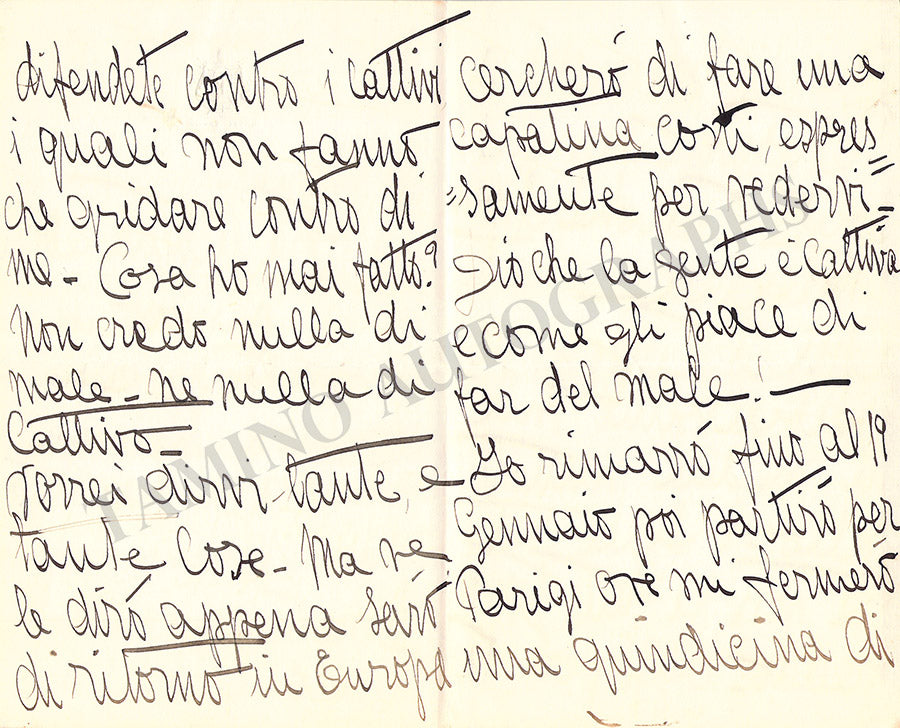 difendete contro i cattivi
i quali non fanno
che gridare contro di
me - Cosa ho mai fatto?
Non credo nulla di
male - ne nulla di
Cattivo -
Vorrei dirvi tante, e
tante Cose - Ma ve
le dirò appena sarò
di ritorno in Europa
cercherò di fare una
capatina costi, espres=
=samente per vedervi -
Dio che la gente è cattiva
e come gli piace di
far del male! -
Io rimarrò fino al 19
Gennaio poi partirò per
Parigi ove mi fermerò
una quindicina di
TAMINO AUTOGRAPHS